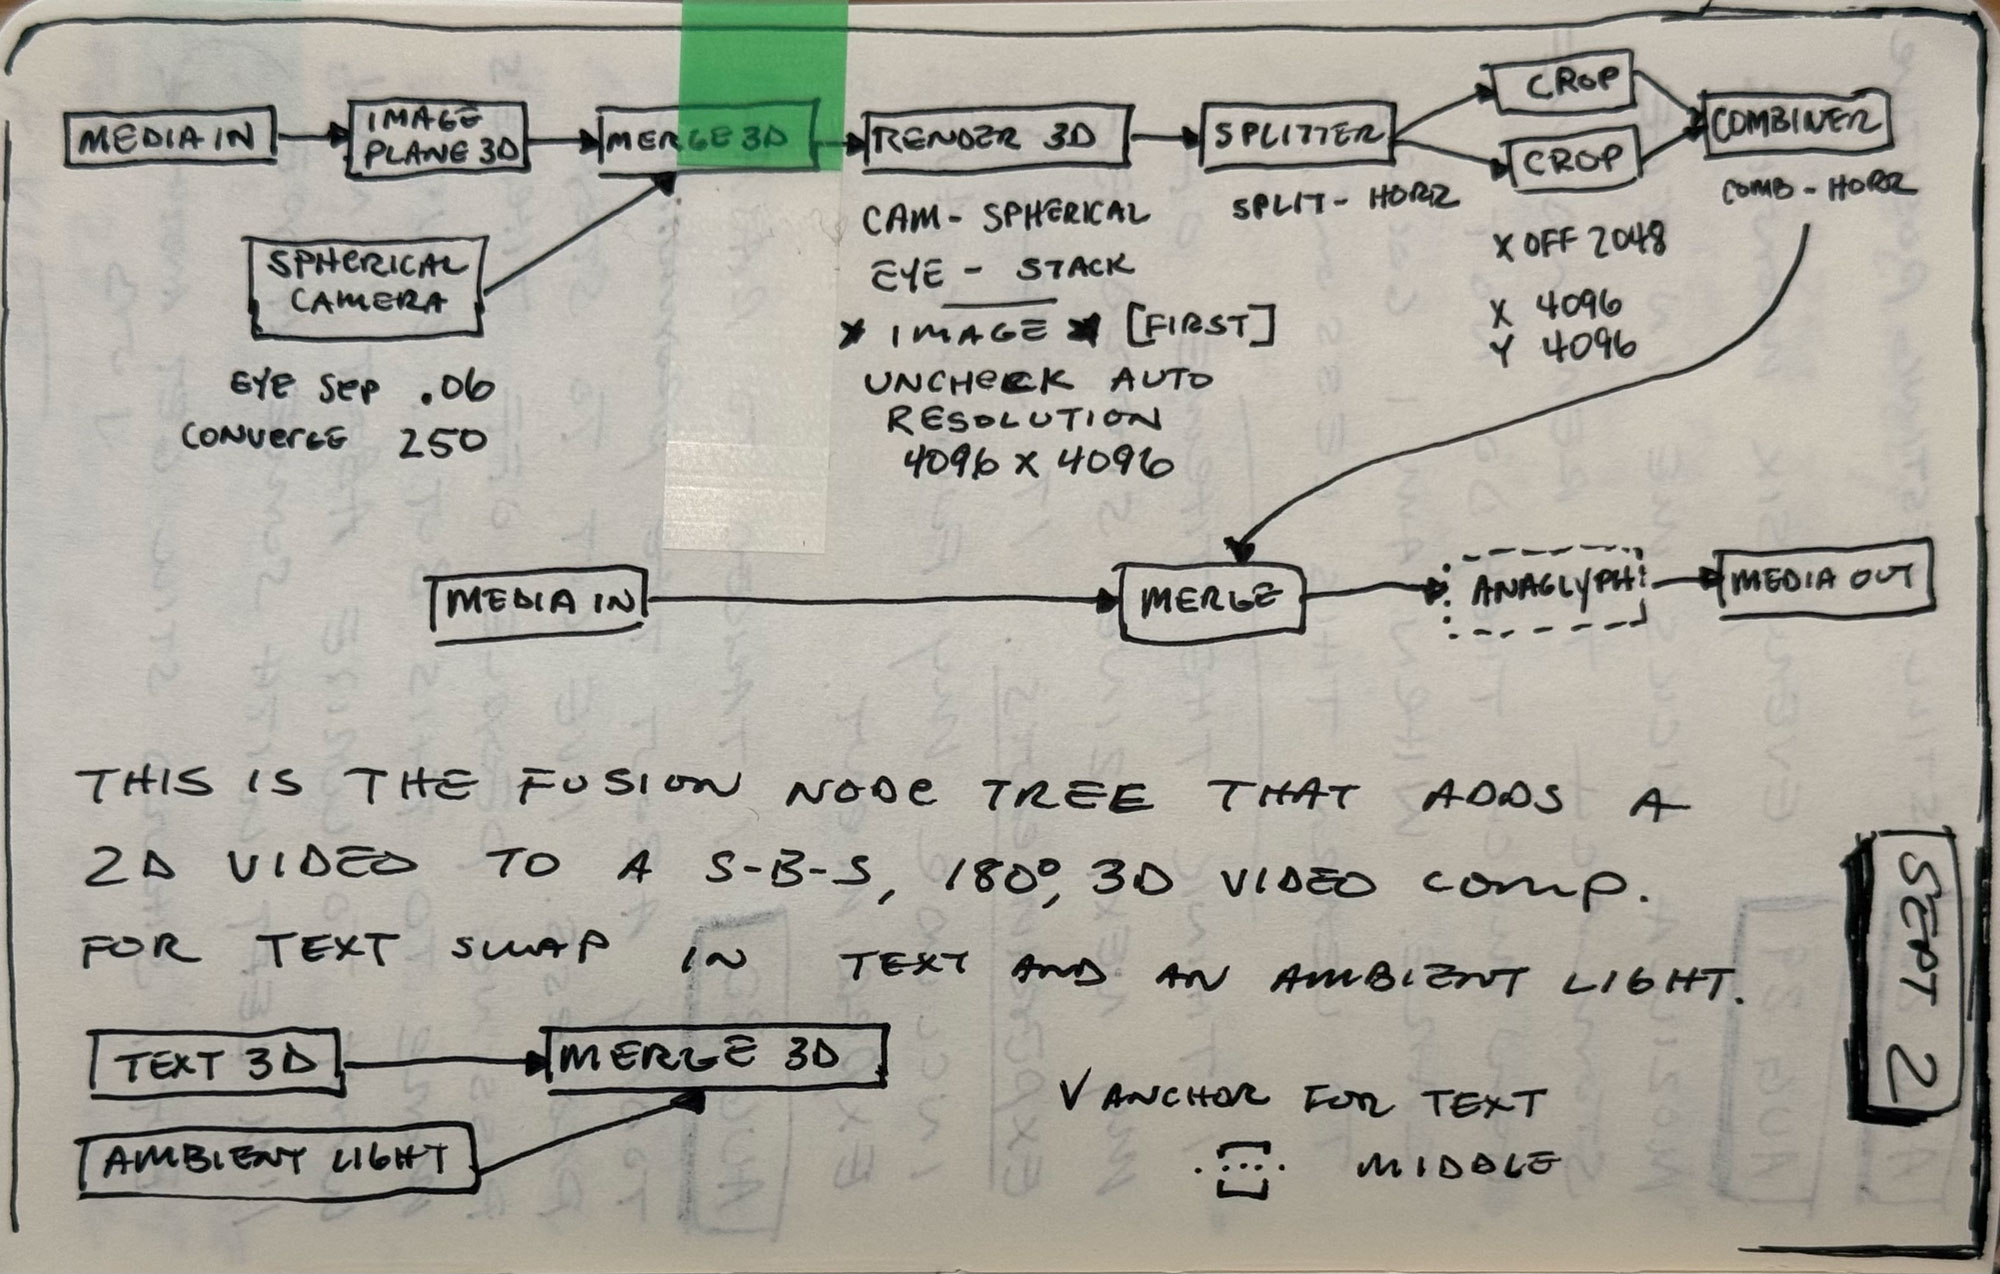 MEDIA IN
IMAGE
PLANE 3D
MERGE 3D
RENDER 3D
SPLITTER
CROP
CROP
COMBINER
SPHERICAL
CAMERA
EYE SEP .06
CONVERGE 250
CAM - SPHERICAL
EYE - STACK
* IMAGE * [FIRST]
UNCHECK AUTO
RESOLUTION
4096 X 4096
SPLIT - HORZ
X OFF 2048
X 4096
Y 4096
COMB - HORZ
MEDIA IN
MERGE
ANAGLYPH
MEDIA OUT
THIS IS THE FUSION NODE TREE THAT ADDS A
2D VIDEO TO A S-B-S, 180°, 3D VIDEO COMP.
FOR TEXT SWAP IN TEXT AND AN AMBIENT LIGHT.
TEXT 3D
MERGE 3D
AMBIENT LIGHT
V ANCHOR FOR TEXT
MIDDLE
SEPT 2